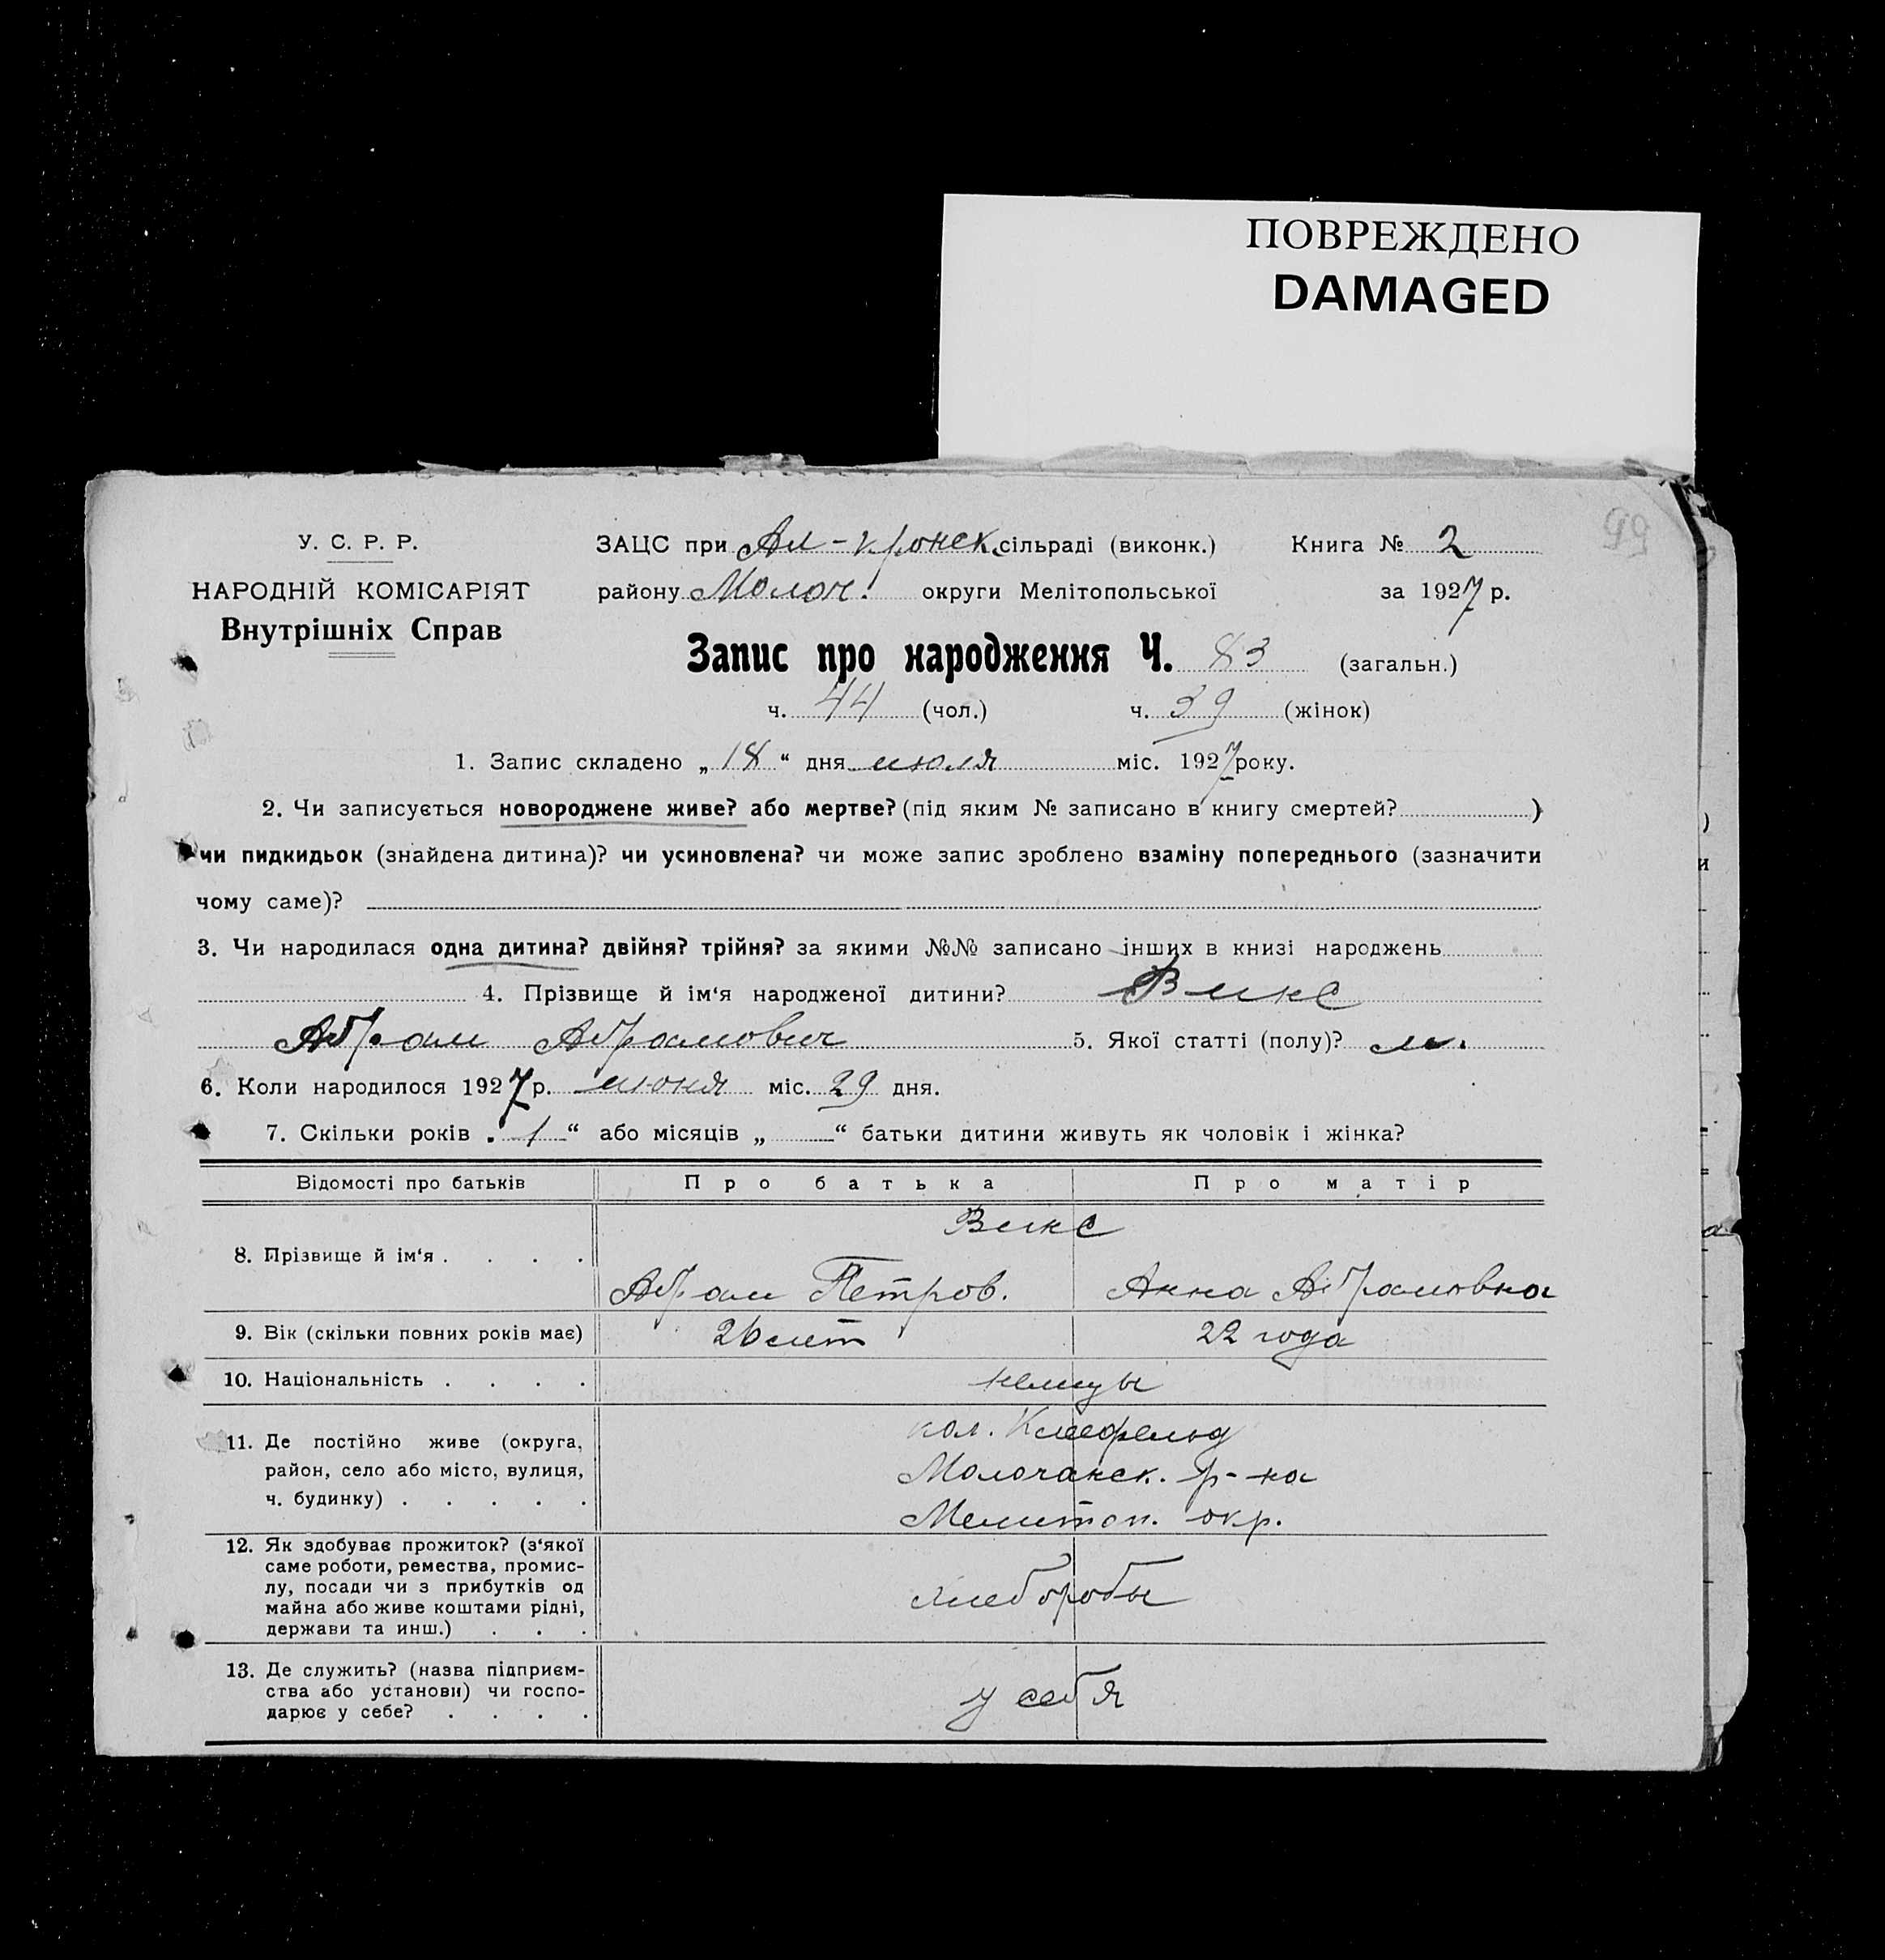 ПОВРЕЖДЕНО
DAMAGED
99
У. С. Р. Р.
НАРОДНІЙ КОМІСАРІЯТ
Внутрішніх Справ
ЗАЦС при Ал-кронск. сільраді (виконк.) Книга № 2
району Молоч. округи Мелітопольської за 1927 р.
Запис про народження Ч. 83 (загальн.)
ч. 44 (чол.) ч. 39 (жінок)
1. Запис складено „18“ дня июля міс. 1927 року.
2. Чи записується новороджене живе? або мертве? (під яким № записано в книгу смертей? )
чи пидкидьок (знайдена дитина)? чи усиновлена? чи може запис зроблено взаміну попереднього (зазначити
чому саме)?
3. Чи народилася одна дитина? двійня? трійня? за якими №№ записано інших в книзі народжень
4. Прізвище й ім‘я народженої дитини? Викс
Абрам Абрамович 5. Якої статті (полу)? м.
6. Коли народилося 1927 р. июня міс. 29 дня.
7. Скільки років „1“ або місяців „ “ батьки дитини живуть як чоловік і жінка?
Відомості про батьків Про батька Про матір
Викс
8. Прізвище й ім‘я . . . .
Абрам Петров. Анна Абрамовна
9. Вік (скільки повних років має) 26 лет 22 года
10. Національність . . . . немцы
11. Де постійно живе (округа, район, село або місто, вулиця, ч. будинку) . . . . .
кол. Клефельд
Молочанск. р-на
Мелитоп. окр.
12. Як здобуває прожиток? (з‘якої
саме роботи, ремества, промис-
лу, посади чи з прибутків од
майна або живе коштами рідні,
держави та инш.) . . .
хлеборобы
13. Де служить? (назва підприєм-
ства або установи) чи госпо-
дарює у себе? . . . .
у себя